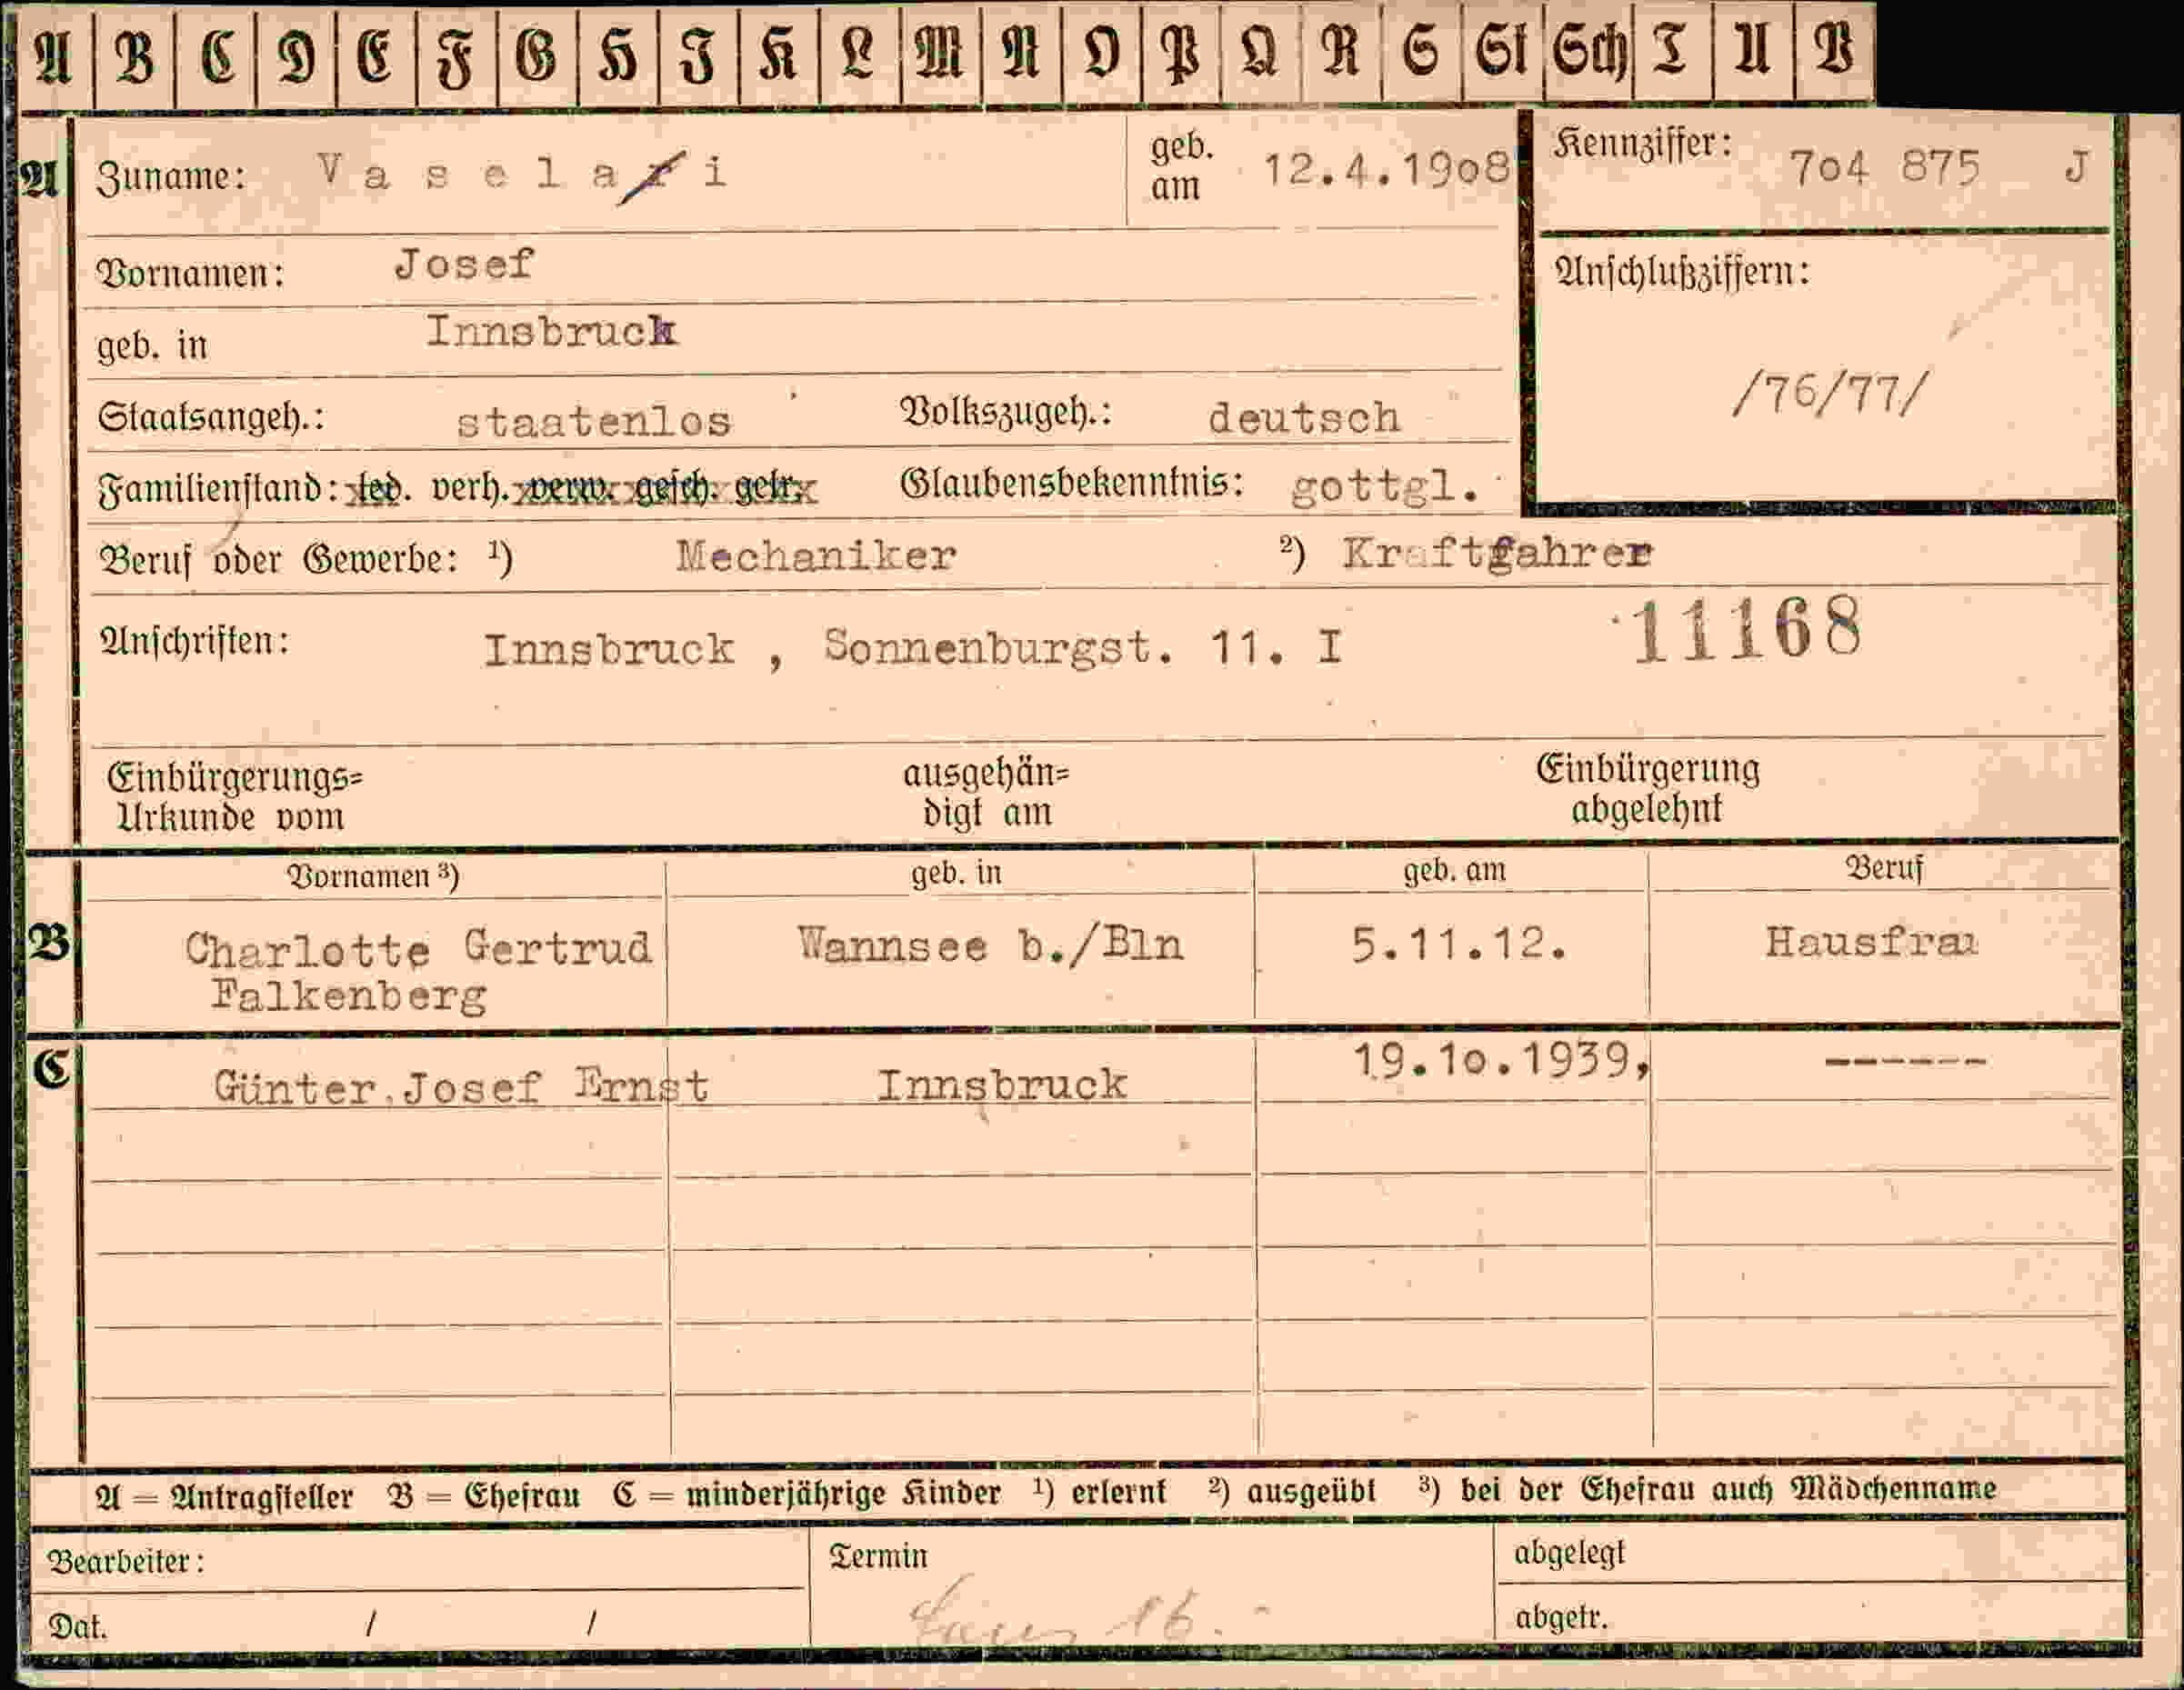 A B C D E F G H I K L M N O P Q R S St Sch T U V
A Zuname: V a s e l a r i geb. am 12.4.1908 Kennziffer: 704 875 J
Vornamen: Josef Anschlußziffern:
geb. in Innsbruck
/76/77/
Staatsangeh.: staatenlos Volkszugeh.: deutsch
Familienstand: led. verh. verw. gesch. getr. Glaubensbekenntnis: gottgl.
Beruf oder Gewerbe: ¹) Mechaniker ²) Kraftfahrer
Anschriften: Innsbruck , Sonnenburgst. 11. I 11168
Einbürgerungs= ausgehän= Einbürgerung
Urkunde vom digt am abgelehnt
Vornamen ³) geb. in geb. am Beruf
B Charlotte Gertrud Wannsee b./Bln 5.11.12. Hausfrau
Falkenberg
C Günter,Josef Ernst Innsbruck 19.1o.1939, ------
A = Antragsteller B = Ehefrau C = minderjährige Kinder ¹) erlernt ²) ausgeübt ³) bei der Ehefrau auch Mädchenname
Bearbeiter: Termin abgelegt
Dat. / / 16. abgetr.